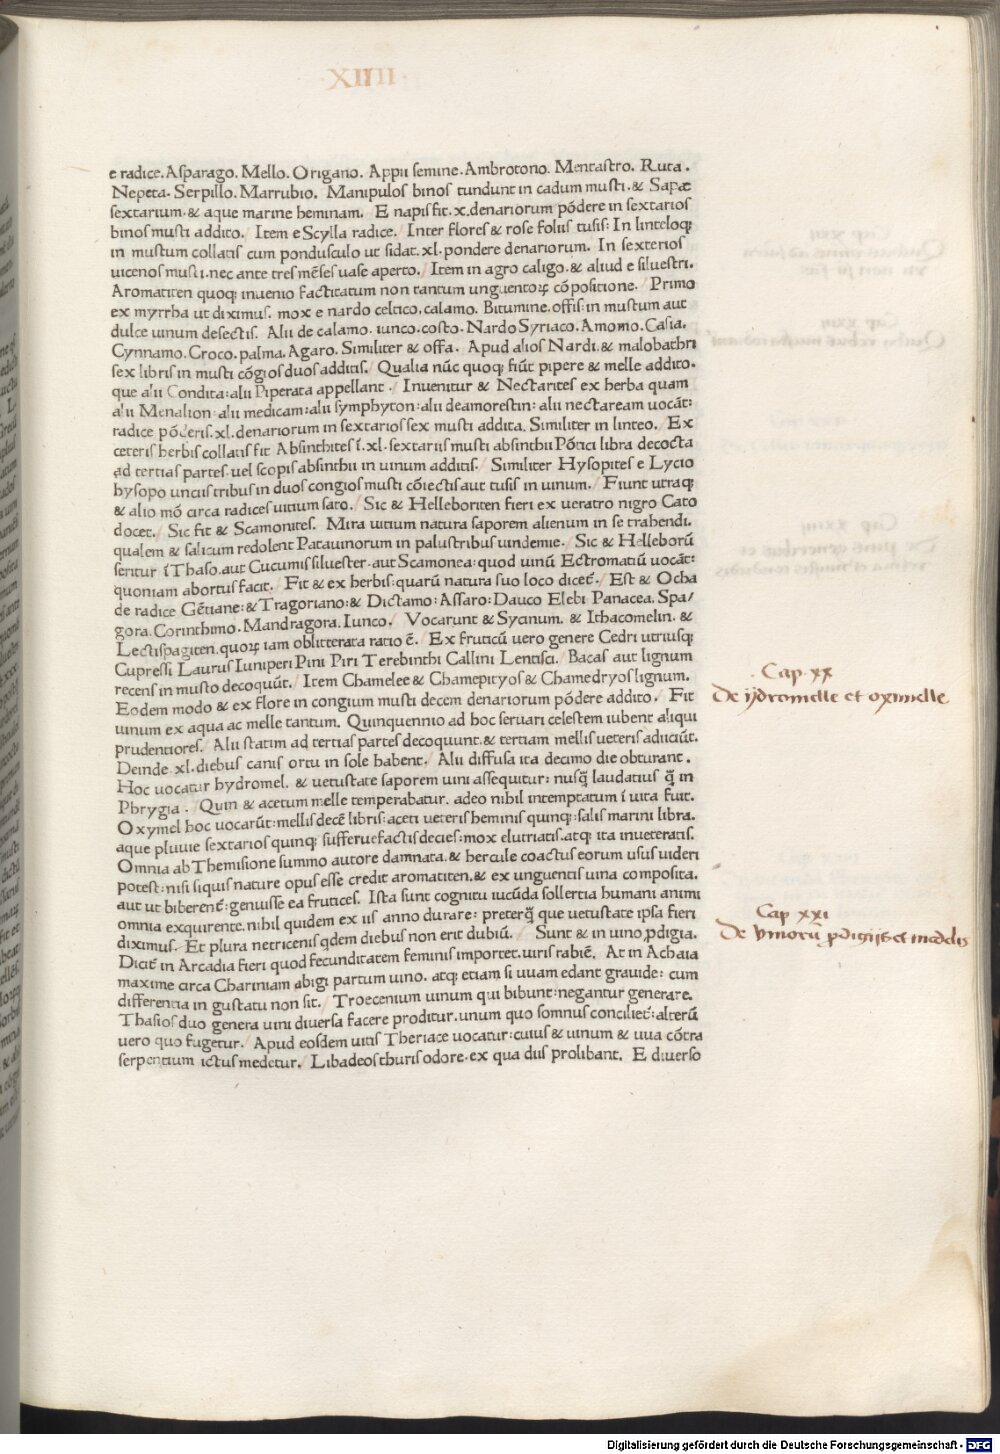 ·XIIII·
e radice. Asparago. Mello. Origano. Appii semine. Ambrotono. Mentastro. Ruta.
Nepeta. Serpillo. Marrubio. Manipulos binos tundunt in cadum musti. & Sapæ
sextarium. & aque marine heminam. E napis fit .x. denariorum põdere in sextarios
binos musti addito. Item e Scylla radice. Inter flores & rose foliis tusis: In linteloqꝫ
in mustum collatis cum pondusculo ut sidat .xl. pondere denariorum. In sexterios
uicenos musti. nec ante tres mẽses uase aperto. Item in agro caligo. & aliud e siluestri.
Aromatiten quoqꝫ inuenio factitatum non tantum unguentoꝝ cõpositione. Primo
ex myrrha ut diximus. mox e nardo celtico, calamo. Bitumine. offis: in mustum aut
dulce uinum defectis. Alii de calamo. iunco. costo. Nardo Syriaco. Amomo. Casia.
Cynnamo. Croco. palma. Agaro. Similiter & offa. Apud alios Nardi. & malobathri
sex libris in musti cõgios duos additis. Qualia nũc quoqꝫ fiũt pipere & melle addito.
que alii Condita: alii Piperata appellant. Inuenitur & Nectarites ex herba quam
alii Menalion: alii medicam: alii symphyton: alii deamorestin: alii nectaream uocãt:
radice põderis .xl. denariorum in sextarios sex musti addita. Similiter in linteo. Ex
ceteris herbis collatis fit Absinthites ĩ .xl. sextariis musti absinthii Põtici libra decocta
ad tertias partes. uel scopis absinthii in uinum additis. Similiter Hysopites e Lycio
hysopo unciis tribus in duos congios musti cõiectis aut tusis in uinum. Fiunt utraqꝫ
& alio mõ circa radices uitium sato. Sic & Helleboriten fieri ex ueratro nigro Cato
docet. Sic fit & Scamonites. Mira uitium natura saporem alienum in se trahendi.
qualem & salicum redolent Patauinorum in palustribus uindemie. Sic & Helleborũ
seritur ĩ Thaso. aut Cucumis siluester. aut Scamonea: quod uinũ Ectromatiũ uocãt:
quoniam abortus facit. Fit & ex herbis: quarũ natura suo loco dicet̃. Est & Ocha
de radice Gẽtiane: & Tragoriano: & Dictamo: Assaro: Dauco Elebi Panacea. Spa/
gora. Corinthimo. Mandragora. Iunco. Vocarunt & Sycinum. & Ithacomelin. &
Lectispagiten. quoꝝ iam oblitterata ratio ẽ. Ex fruticũ uero genere Cedri utriusqꝫ
Cupressi Laurus Iuniperi Pini Piri Terebinthi Callini Lentisci. Bacas aut lignum
recens in musto decoquũt. Item Chamelee & Chamepityos & Chamedryos lignum.
Eodem modo & ex flore in congium musti decem denariorum põdere addito. Fit
uinum ex aqua ac melle tantum. Quinquennio ad hoc seruari celestem iubent aliqui
prudentiores. Alii statim ad tertias partes decoquunt. & tertiam mellis ueteris adiiciũt.
Deinde .xl. diebus canis ortu in sole habent. Alii diffusa ita decimo die obturant.
Hoc uocatur hydromel. & uetustate saporem uini assequitur: nusq̃ laudatius q̃ in
Phrygia. Quin & acetum melle temperabatur. adeo nihil intemptatum ĩ uita fuit.
Oxymel hoc uocarũt: mellis decẽ libris: aceti ueteris heminis quinqꝫ: salis marini libra.
aque pluuie sextarios quinqꝫ sufferuefactis decies: mox elutriatis. atqꝫ ita inueteratis.
Omnia ab Themisione summo autore damnata. & hercule coactus eorum usus uideri
potest: nisi siquis nature opus esse credit aromatiten. & ex unguentis uina composita.
aut ut biberent̃: genuisse ea frutices. Ista sunt cognitu iucũda sollertia humani animi
omnia exquirente. nihil quidem ex iis anno durare: preterq̃ que uetustate ipsa fieri
diximus. Et plura ne tricenis qdem diebus non erit dubiũ. Sunt & in uino ꝓdigia.
Dicit̃ in Arcadia fieri quod fecunditatem feminis importet. uiris rabiẽ. At in Achaia
maxime circa Chariniam abigi partum uino. atqꝫ etiam si uuam edant grauide: cum
differentia in gustatu non sit. Troecenium uinum qui bibunt: negantur generare.
Thasios duo genera uini diuersa facere proditur. unum quo somnus conciliet̃: alterũ
uero quo fugetur. Apud eosdem uitis Theriace uocatur: cuius & uinum & uua cõtra
serpentium ictus medetur. Libadeos thuris odore. ex qua diis prolibant. E diuerso
Cap xx
De ijdromelle et oximelle
Cap xxi
De vinorũ ꝓdigijs et medelis
Digitalisierung gefördert durch die Deutsche Forschungsgemeinschaft - DFG